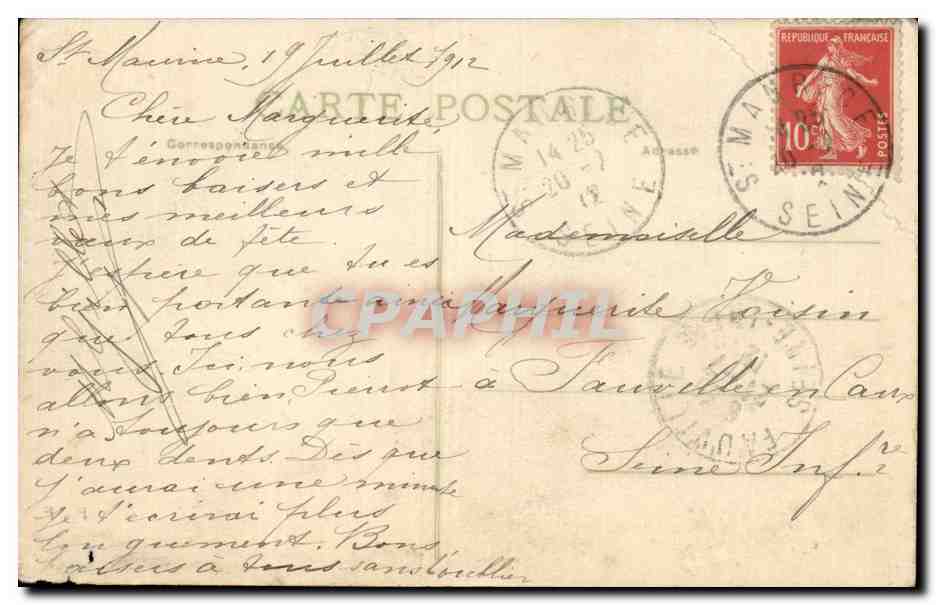 St Maurice, 19 Juillet 1912
CARTE POSTALE
Chère Marguerite
Correspondance
Adresse
Je t'envoie mille
bons baisers et
mes meilleurs
vœux de fête.
J'espère que tu es
bien portante ainsi
que tous chez
vous. Ici, nous
allons bien, Pierrot
n'a toujours que
deux dents. Dès que
j'aurai une minute
je t'écrirai plus
longuement. Bons
baisers à tous sans oublier
Mademoiselle
Marguerite Voisin
à Fauville en Caux
Seine Infre
RÉPUBLIQUE FRANÇAISE
10c
POSTES
ST MAURICE
SEINE
ST MAURICE
14 25
20 -7
12
SEINE
FAUVILLE
SEINE-INFRE
CPAPHIL